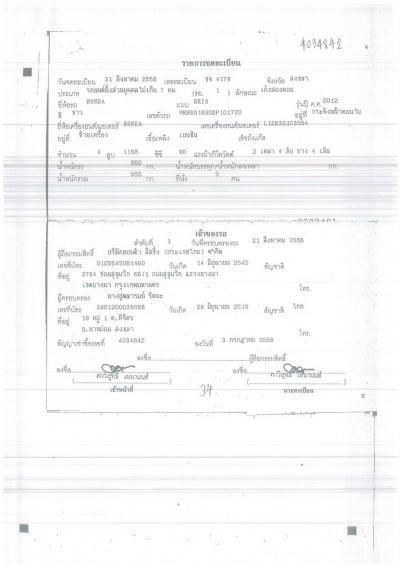 4034842
4
รายการจดทะเบียน
วันจดทะเบียน 21 สิงหาคม 2556 เลขทะเบียน ขจ 4176 จังหวัด สงขลา
ประเภท รถยนต์นั่งส่วนบุคคลไม่เกิน 7 คน (รย. 1 ) ลักษณะ เก๋งสองตอน
ยี่ห้อรถ HONDA แบบ BRIO รุ่นปี ค.ศ. 2012
สี ขาว เลขตัวรถ อยู่ที่
ยี่ห้อเครื่องยนต์/มอเตอร์ HONDA เลขเครื่องยนต์/มอเตอร์
อยู่ที่ ข้างเครื่อง เชื้อเพลิง เบนซิน เลขถังแก๊ส
จำนวน 4 สูบ 1198 ซีซี 90 แรงม้า/กิโลวัตต์ 2 เพลา 4 ล้อ ยาง 4 เส้น
น้ำหนักรถ 950 กก. น้ำหนักบรรทุก/น้ำหนักลงเพลา กก.
น้ำหนักรวม 950 กก. ที่นั่ง 5 คน
เจ้าของรถ
ลำดับที่ 1 วันที่ครอบครองรถ 21 สิงหาคม 2556
ผู้ถือกรรมสิทธิ์ บริษัทฮอนด้า ลีสซิ่ง (ประเทศไทย) จำกัด
เลขที่บัตร 0105545061460 วันเกิด 14 มิถุนายน 2545 สัญชาติ
ที่อยู่ 2754 ซอยสุขุมวิท 66/1 ถนนสุขุมวิท แขวงบางนา
เขตบางนา กรุงเทพมหานคร โทร.
ผู้ครอบครอง
เลขที่บัตร 3901200036068 วันเกิด 29 มิถุนายน 2519 สัญชาติ ไทย
ที่อยู่ 19 หมู่ 1
สงขลา โทร.
สัญญาเช่าซื้อเลขที่ 4034842 ลงวันที่ 3 กรกฎาคม 2556
ลงชื่อ ผู้ถือกรรมสิทธิ์
ลงชื่อ ลงชื่อ
เจ้าหน้าที่ 34 นายทะเบียน